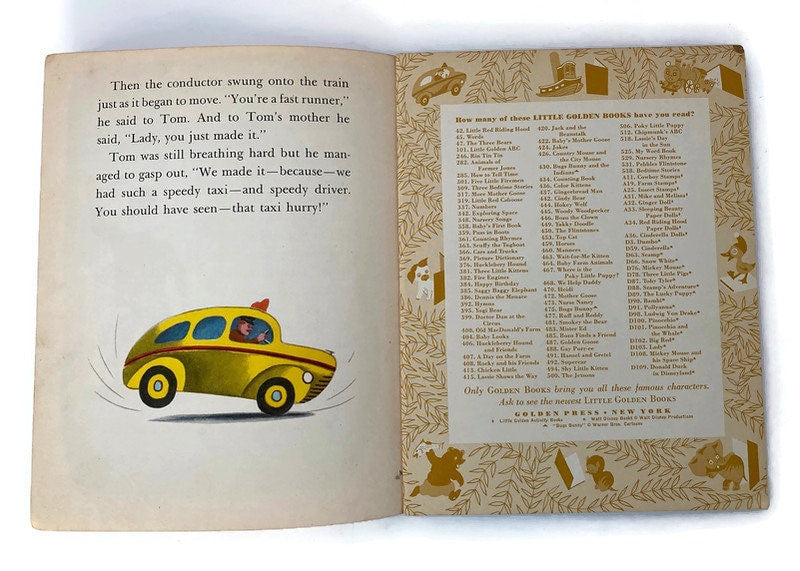 Then the conductor swung onto the train
just as it began to move. "You're a fast runner,"
he said to Tom. And to Tom's mother he
said, "Lady, you just made it."
Tom was still breathing hard but he man-
aged to gasp out, "We made it—because—we
had such a speedy taxi—and speedy driver.
You should have seen—that taxi hurry!"
How many of these LITTLE GOLDEN BOOKS have you read?
42. Little Red Riding Hood
45. Words
47. The Three Bears
101. Little Golden ABC
246. Rin Tin Tin
282. Animals of
Farmer Jones
285. How to Tell Time
301. Five Little Firemen
309. Three Bedtime Stories
317. More Mother Goose
319. Little Red Caboose
337. Numbers
342. Exploring Space
348. Nursery Songs
358. Baby's First Book
359. Puss in Boots
361. Counting Rhymes
363. Scuffy the Tugboat
366. Cars and Trucks
369. Picture Dictionary
376. Huckleberry Hound
381. Three Little Kittens
382. Fire Engines
384. Happy Birthday
385. Saggy Baggy Elephant
386. Dennis the Menace
392. Hymns
395. Yogi Bear
399. Doctor Dan at the
Circus
400. Old MacDonald's Farm
404. Baby Looks
406. Huckleberry Hound
and Friends
407. A Day on the Farm
408. Rocky and his Friends
413. Chicken Little
415. Lassie Shows the Way
420. Jack and the
Beanstalk
422. Baby's Mother Goose
424. Jokes
426. Country Mouse and
the City Mouse
430. Bugs Bunny and the
Indians
434. Counting Book
436. Color Kittens
437. Gingerbread Man
442. Cindy Bear
444. Hokey Wolf
445. Woody Woodpecker
446. Bozo the Clown
449. Yakky Doodle
450. The Flintstones
453. Top Cat
459. Horses
460. Manners
463. Wait-for-Me Kitten
464. Baby Farm Animals
467. Where is the
Poky Little Puppy?
468. We Help Daddy
470. Heidi
472. Mother Goose
473. Nurse Nancy
475. Bugs Bunny
477. Ruff and Reddy
481. Smokey the Bear
483. Mister Ed
485. Bozo Finds a Friend
487. Golden Goose
488. Gay Purr-ee
491. Hansel and Gretel
492. Supercar
494. Shy Little Kitten
500. The Jetsons
506. Poky Little Puppy
512. Chipmunk's ABC
518. Lassie's Day
in the Sun
525. My Word Book
529. Nursery Rhymes
531. Pebbles Flintstone
538. Bedtime Stories
A11. Cowboy Stamps*
A19. Farm Stamps*
A25. Insect Stamps*
A31. Mike and Melissa*
A32. Ginger Doll*
A33. Sleeping Beauty
Paper Dolls*
A34. Red Riding Hood
Paper Dolls*
A36. Cinderella Dolls*
D3. Dumbo
D59. Cinderella
D63. Scamp
D66. Snow White
D76. Mickey Mouse
D78. Three Little Pigs
D87. Toby Tyler
D88. Scamp's Adventure
D89. The Lucky Puppy
D90. Bambi
D91. Pollyanna
D98. Ludwig Von Drake
D100. Pinocchio
D101. Pinocchio and
the Whale
D102. Big Red
D103. Lady
D108. Mickey Mouse and
his Space Ship
D109. Donald Duck
in Disneyland
Only GOLDEN BOOKS bring you all these famous characters.
Ask to see the newest LITTLE GOLDEN BOOKS
GOLDEN PRESS • NEW YORK
Little Golden Activity Books Walt Disney Books © Walt Disney Productions
"Bugs Bunny" © Warner Bros. Cartoons